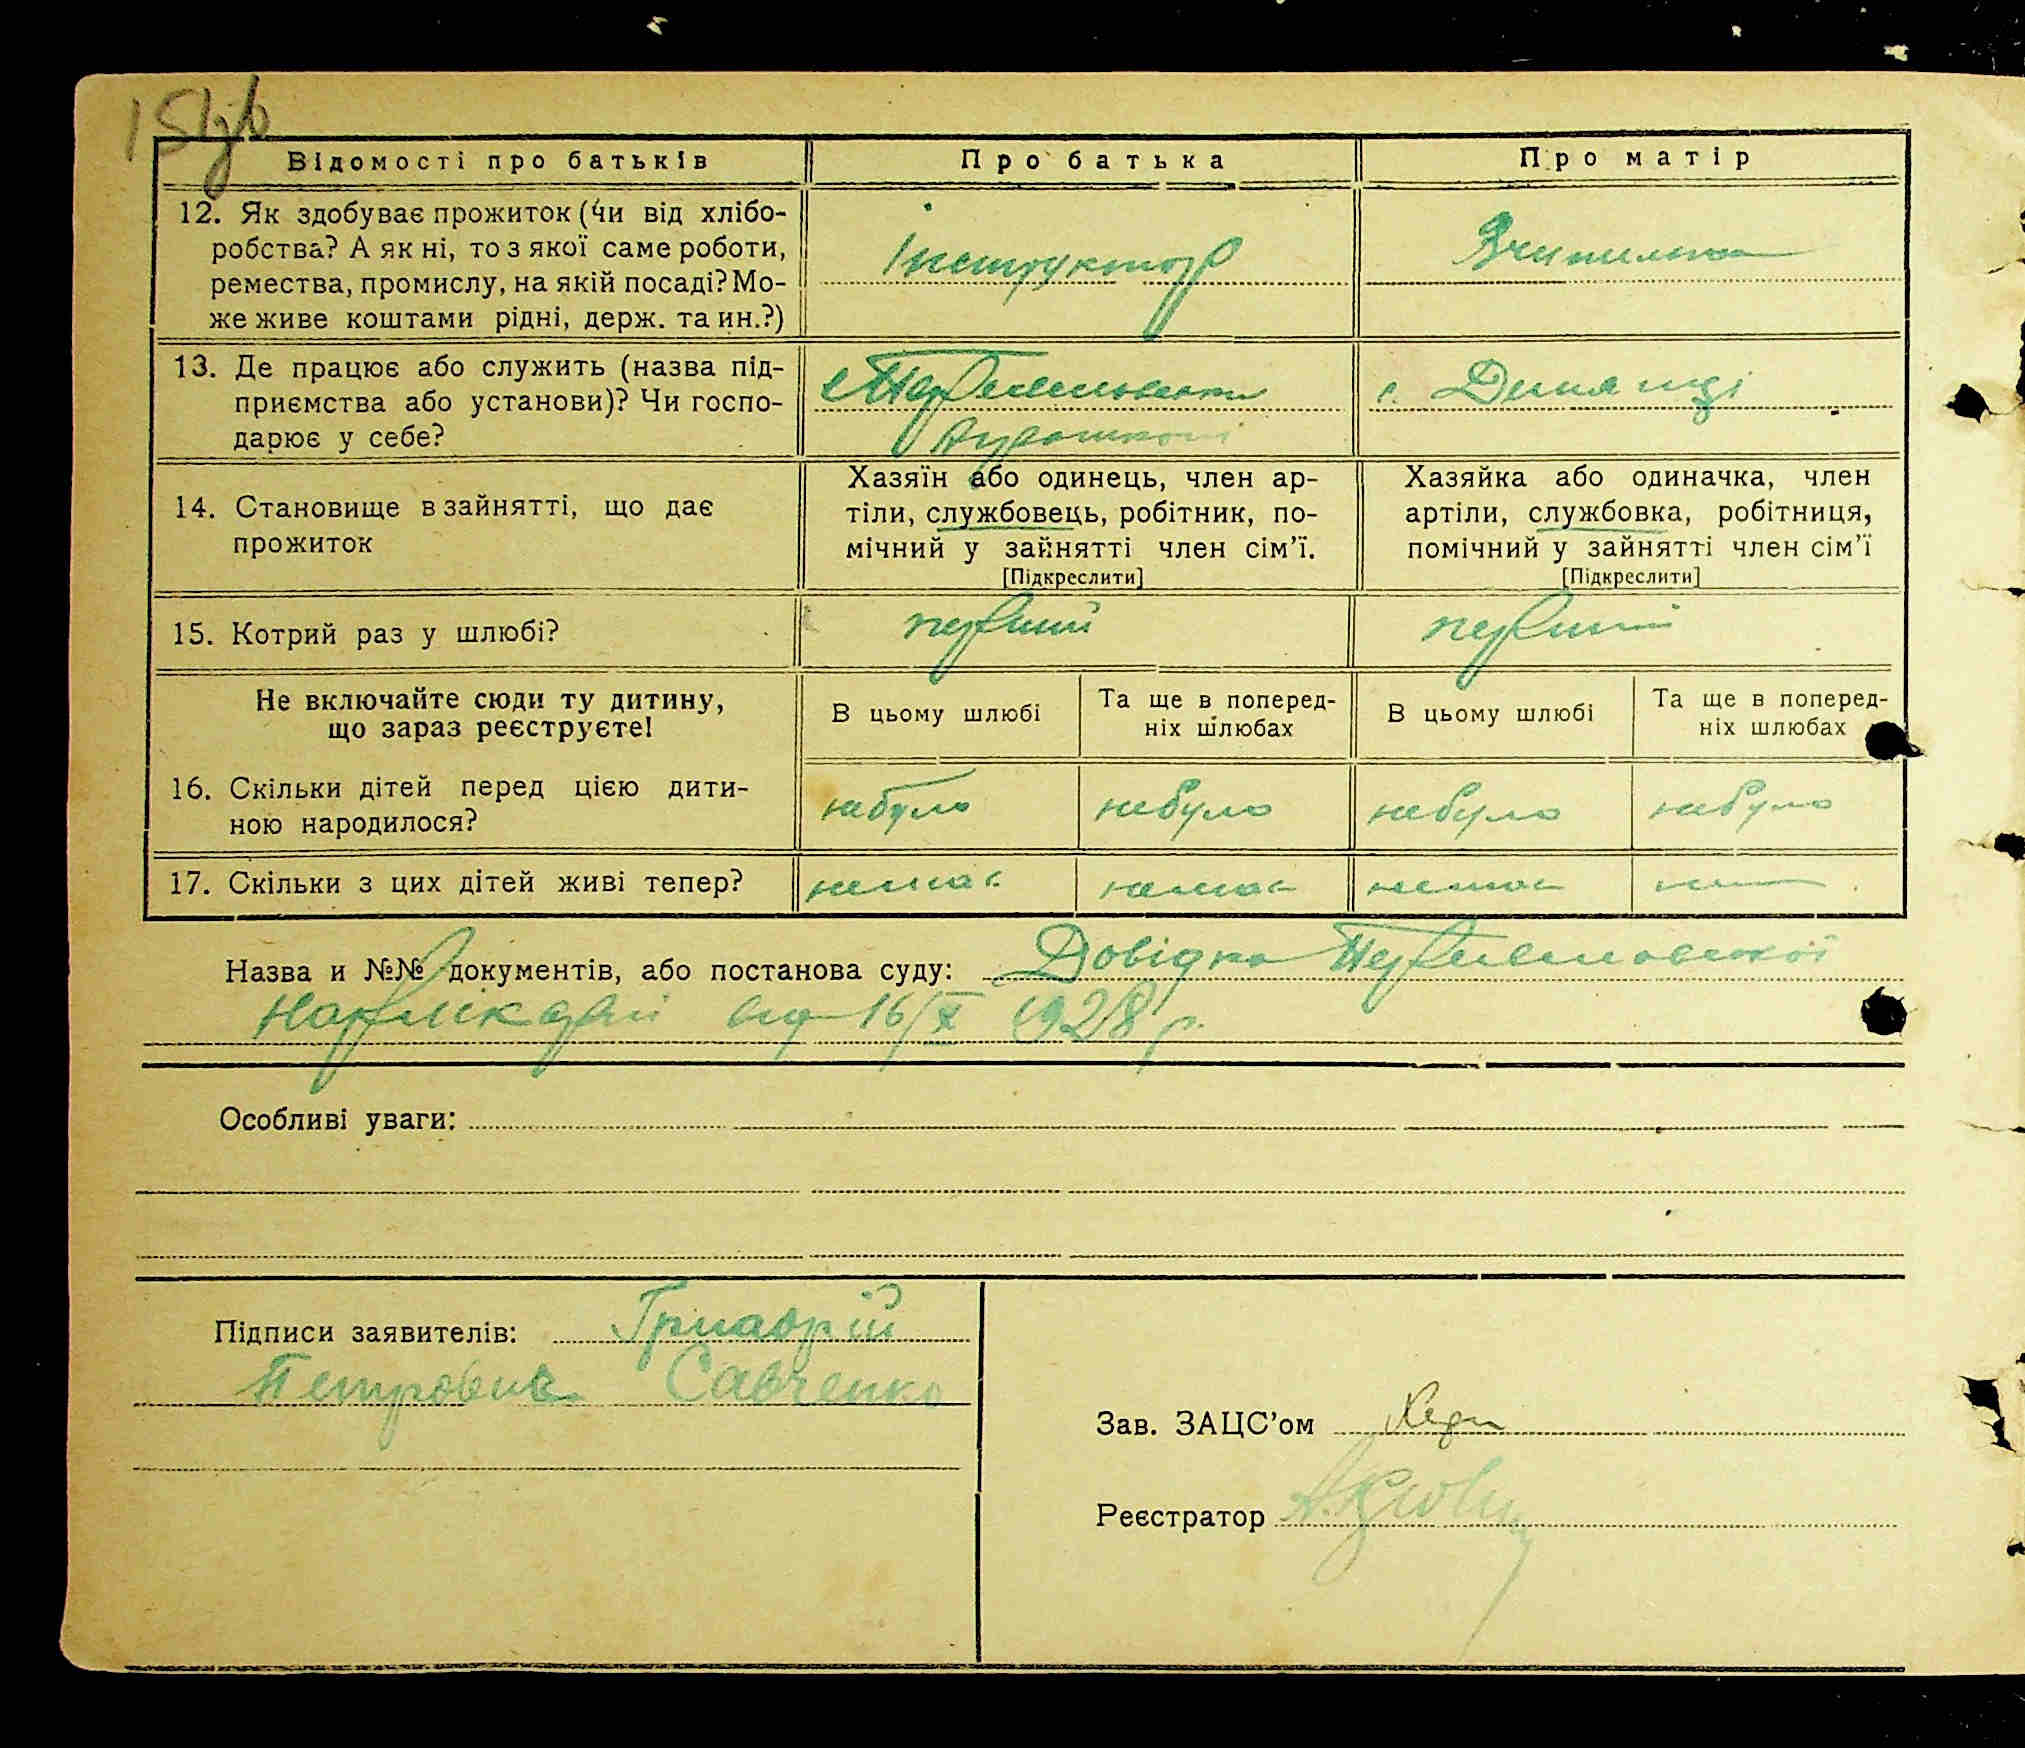 Відомості про батьків
Про батька
Про матір
12. Як здобуває прожиток (чи від хлібо-
робства? А як ні, то з якої саме роботи,
ремества, промислу, на якій посаді? Мо-
же живе коштами рідні, держ. та ин.?)
Інструктор
Вчителька
13. Де працює або служить (назва під-
приємства або установи)? Чи госпо-
дарює у себе?
с.
14. Становище в зайнятті, що дає
прожиток
Хазяїн або одинець, член ар-
тіли, службовець, робітник, по-
мічний у зайнятті член сім’ї.
[Підкреслити]
Хазяйка або одиначка, член
артіли, службовка, робітниця,
помічний у зайнятті член сім’ї
[Підкреслити]
15. Котрий раз у шлюбі?
первий
первий
Не включайте сюди ту дитину,
що зараз реєструєте!
В цьому шлюбі
Та ще в поперед-
ніх шлюбах
В цьому шлюбі
Та ще в поперед-
ніх шлюбах
16. Скільки дітей перед цією дити-
ною народилося?
небуло
небуло
небуло
небуло
17. Скільки з цих дітей живі тепер?
немає
немає
немає
Назва и №№ документів, або постанова суду: Довідка
від 16/X 1928 р.
Особливі уваги:
Підписи заявителів: Григорій
Петрович Савченко
Зав. ЗАЦС’ом
Реєстратор